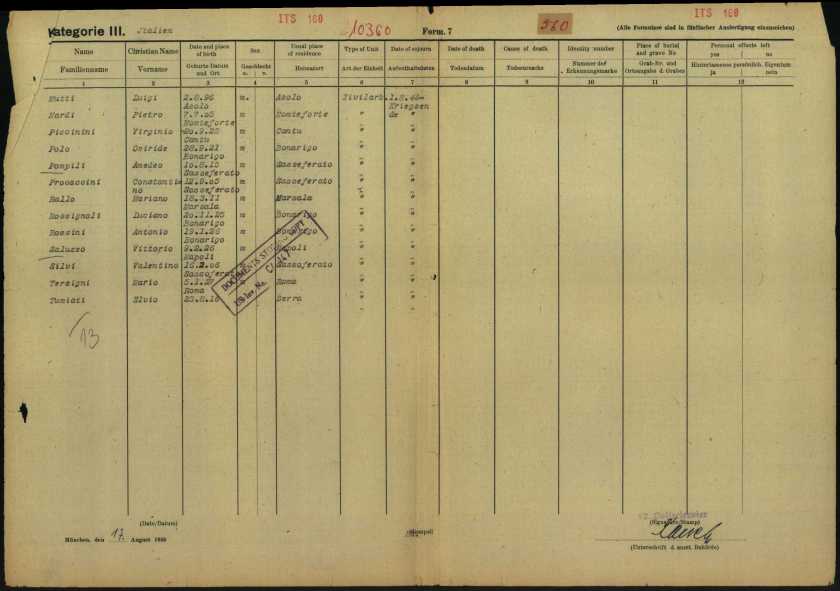 ITS 160
ITS 160
Kategorie III. Italien
10360
Form. 7
560
(Alle Formulare sind in fünffacher Ausfertigung einzureichen)
Name Christian Name Date and place of birth Sex Usual place of residence Type of Unit Date of sejourn Date of death Cause of death Identity number Place of burial and grave No Personal effects left yes no
Familienname Vorname Geburts-Datum und Ort Geschlecht Heimatort Art der Einheit Aufenthaltsdaten Todesdatum Todesursache Nummer der Erkennungsmarke Grab-Nr. und Ortsangabe d. Grabes Hinterlassenes persönlich. Eigentum ja nein
1 2 3 4 5 6 7 8 9 10 11 12
Mutti Luigi 2.8.96 m. Asolo Zivilarb. 1.8.43-
Asolo Kriegsen
Nardi Pietro 7.7.05 m Monteforte " de "
Monteforte
Piccinini Virginio 20.9.22 m Cantu " "
Cantu
Polo Osiride 28.9.21 m Bonarigo " "
Bonarigo
Pompili Amedeo 16.8.15 m Sasseferato " "
Sasseferato
Procaccini Constanti 12.9.05 m Sasseferato " "
no Sasseferato
Rallo Mariano 18.3.11 m Marsala " "
Marsala
Rossignoli Luciano 20.11.25 m Bonarigo " "
Bonarigo
Rossini Antonio 19.1.26 m Bonarigo " "
Bonarigo
Saluzzo Vittorio 9.2.26 Napoli " "
Napoli
Silvi Valentino 16.2.06 Sassoferato " "
Sassoferato
Tersigni Mario Roma " "
Roma
Tumiati Elvio 23.8.16 Serra " "
DOCUMENTS
13
(Date/Datum)
München, den 17. August
(Signature/Stamp)
(Unterschrift d. ausst. Behörde)